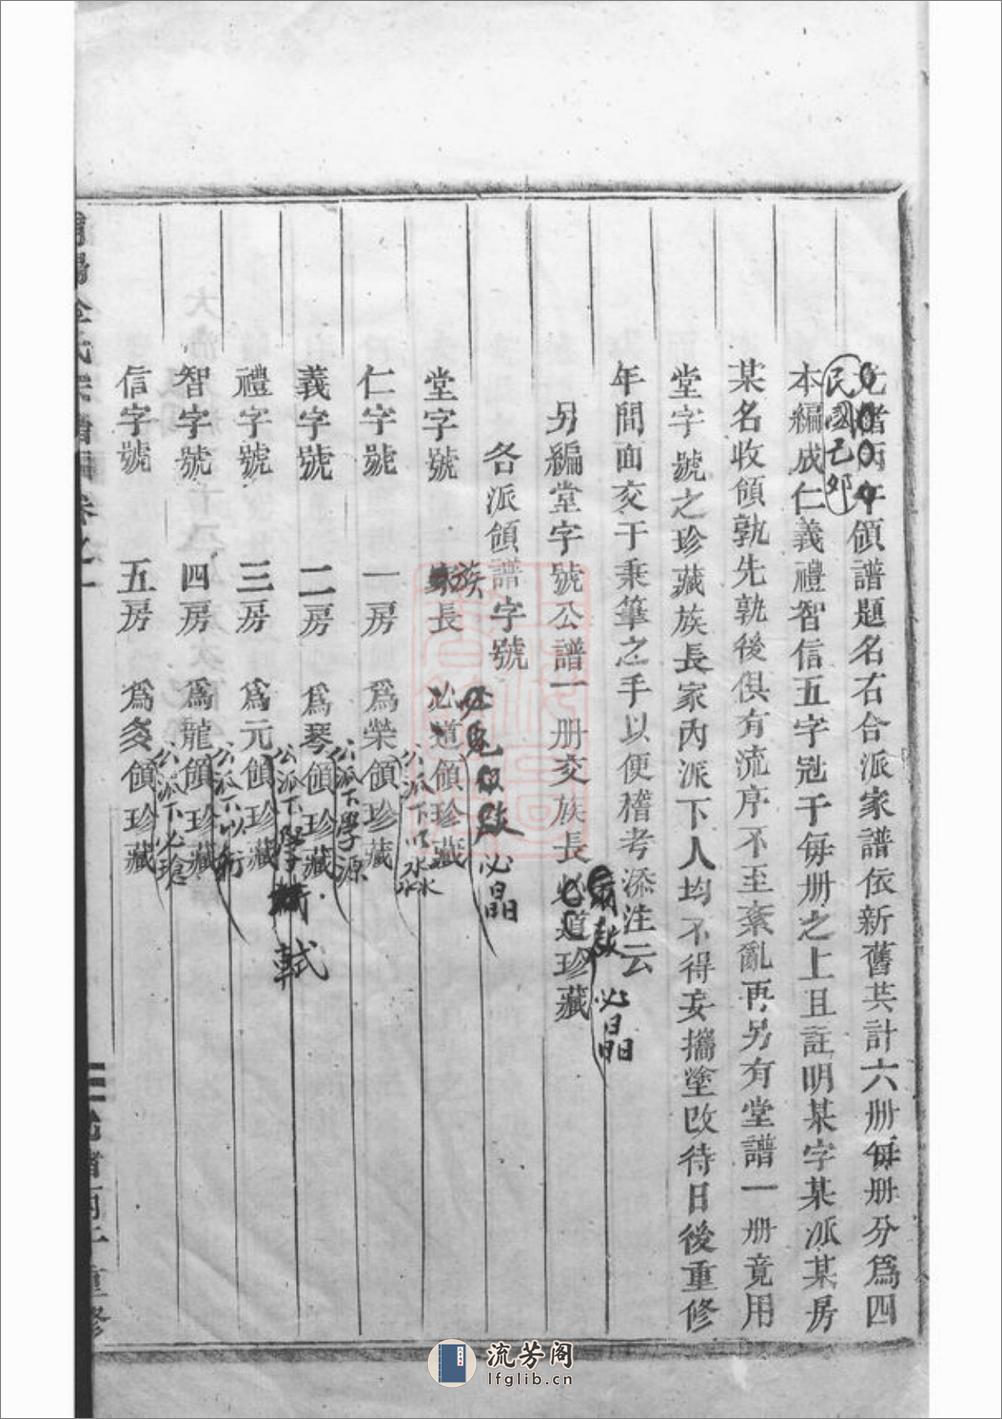 光緒丙午領譜題名右合派家譜依新舊共計六册每册分爲四
民國己卯
本編成仁義禮智信五字冠于每册之上且註明某字某派某房
某名收領孰先孰後俱有流序不至紊亂再另有堂譜一册竟用
堂字號之珍藏族長家內派下人均不得妄攜塗改待日後重修
年間面交于秉筆之手以便稽考添注云
另編堂字號公譜一册交族長必道珍藏
必晶
各派領譜字號
堂字號 族長 必道領珍藏
必晶
仁字號 一房 爲榮領珍藏
公派下以淼
義字號 二房 爲琴領珍藏
公派下學源
禮字號 三房 爲元領珍藏
公派下學 軾
智字號 四房 爲龍領珍藏
公派下以
信字號 五房 爲 領珍藏
公派下必瑲
氏宗譜 卷之一
光緒丙午重修
流芳阁
lfglib.cn